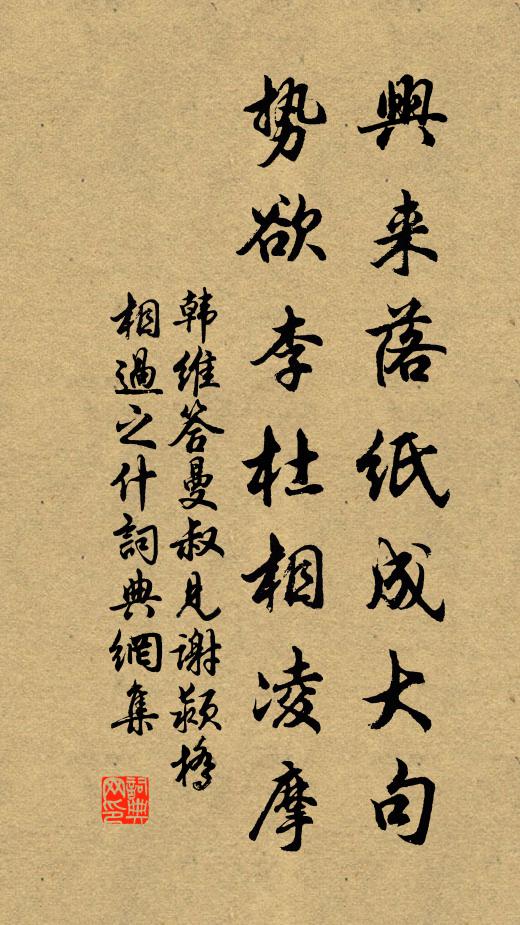 興来落纸成大句
势欲李杜相凌摩
韩维答曼叔见谢颍桥
相過之什詞典網集
詞典
网印